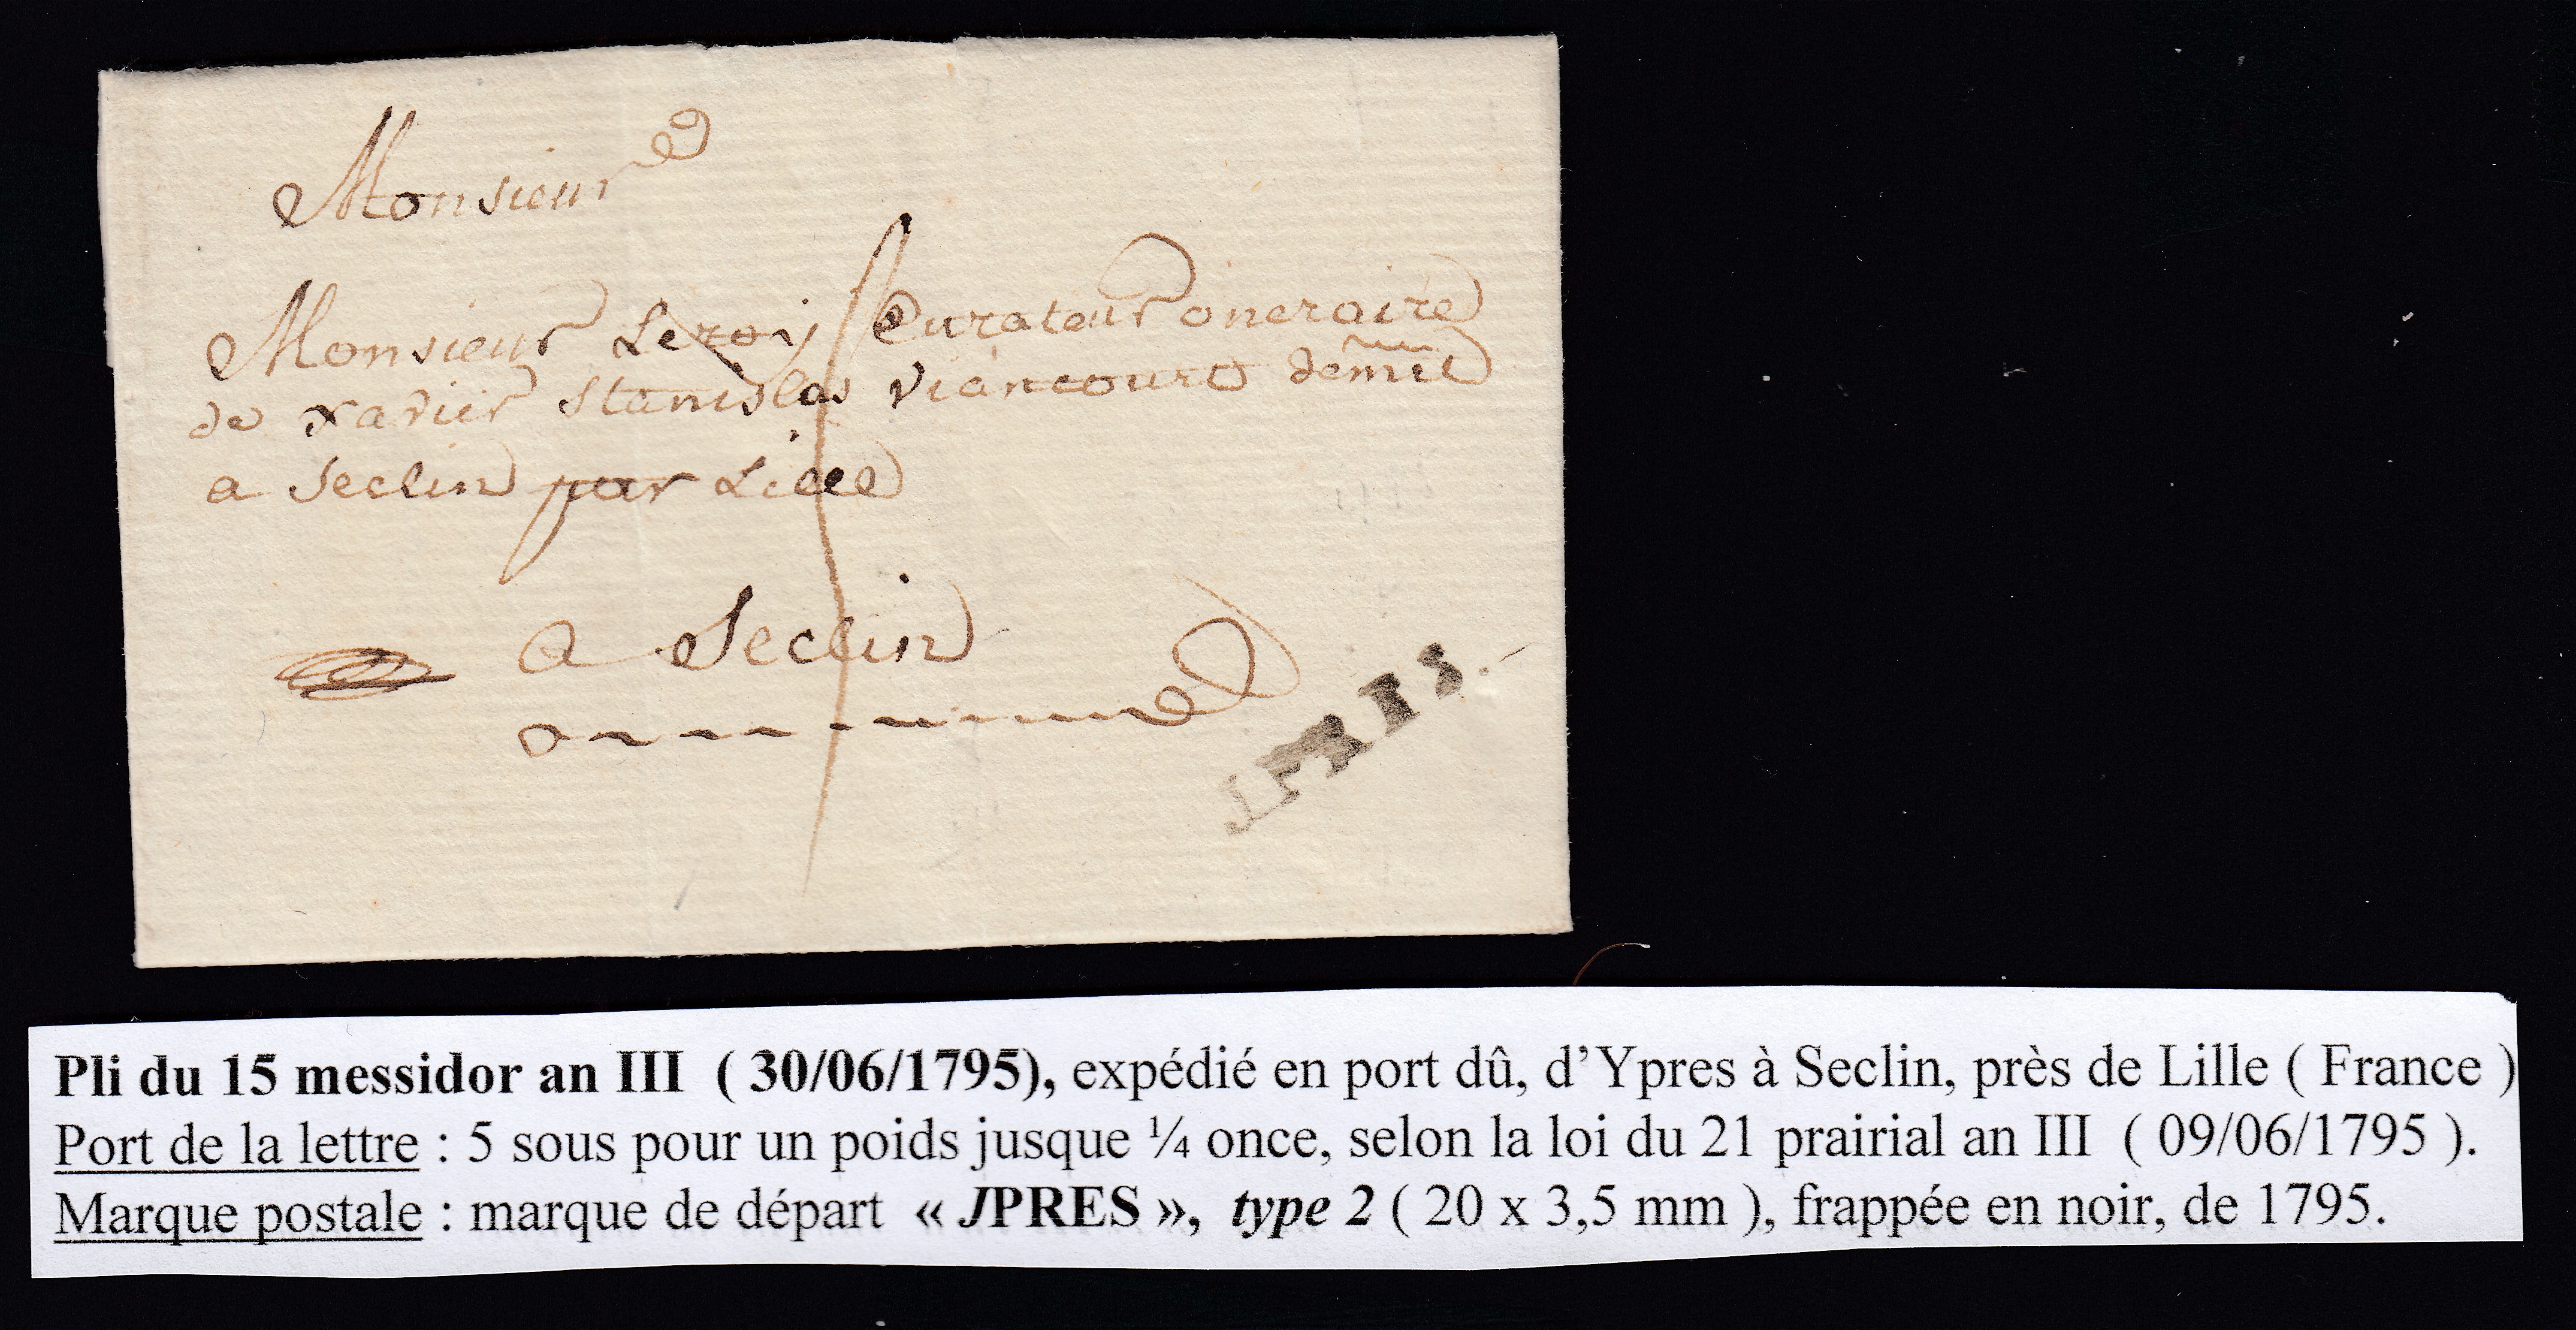 Monsieur
Monsieur Leroy Curateur oneraire
de xavier Stanislas viancourt
a Seclin par Lille
a Seclin
JPRES
Pli du 15 messidor an III ( 30/06/1795), expédié en port dû, d’Ypres à Seclin, près de Lille ( France )
Port de la lettre : 5 sous pour un poids jusque ¼ once, selon la loi du 21 prairial an III ( 09/06/1795 ).
Marque postale : marque de départ « JPRES », type 2 ( 20 x 3,5 mm ), frappée en noir, de 1795.